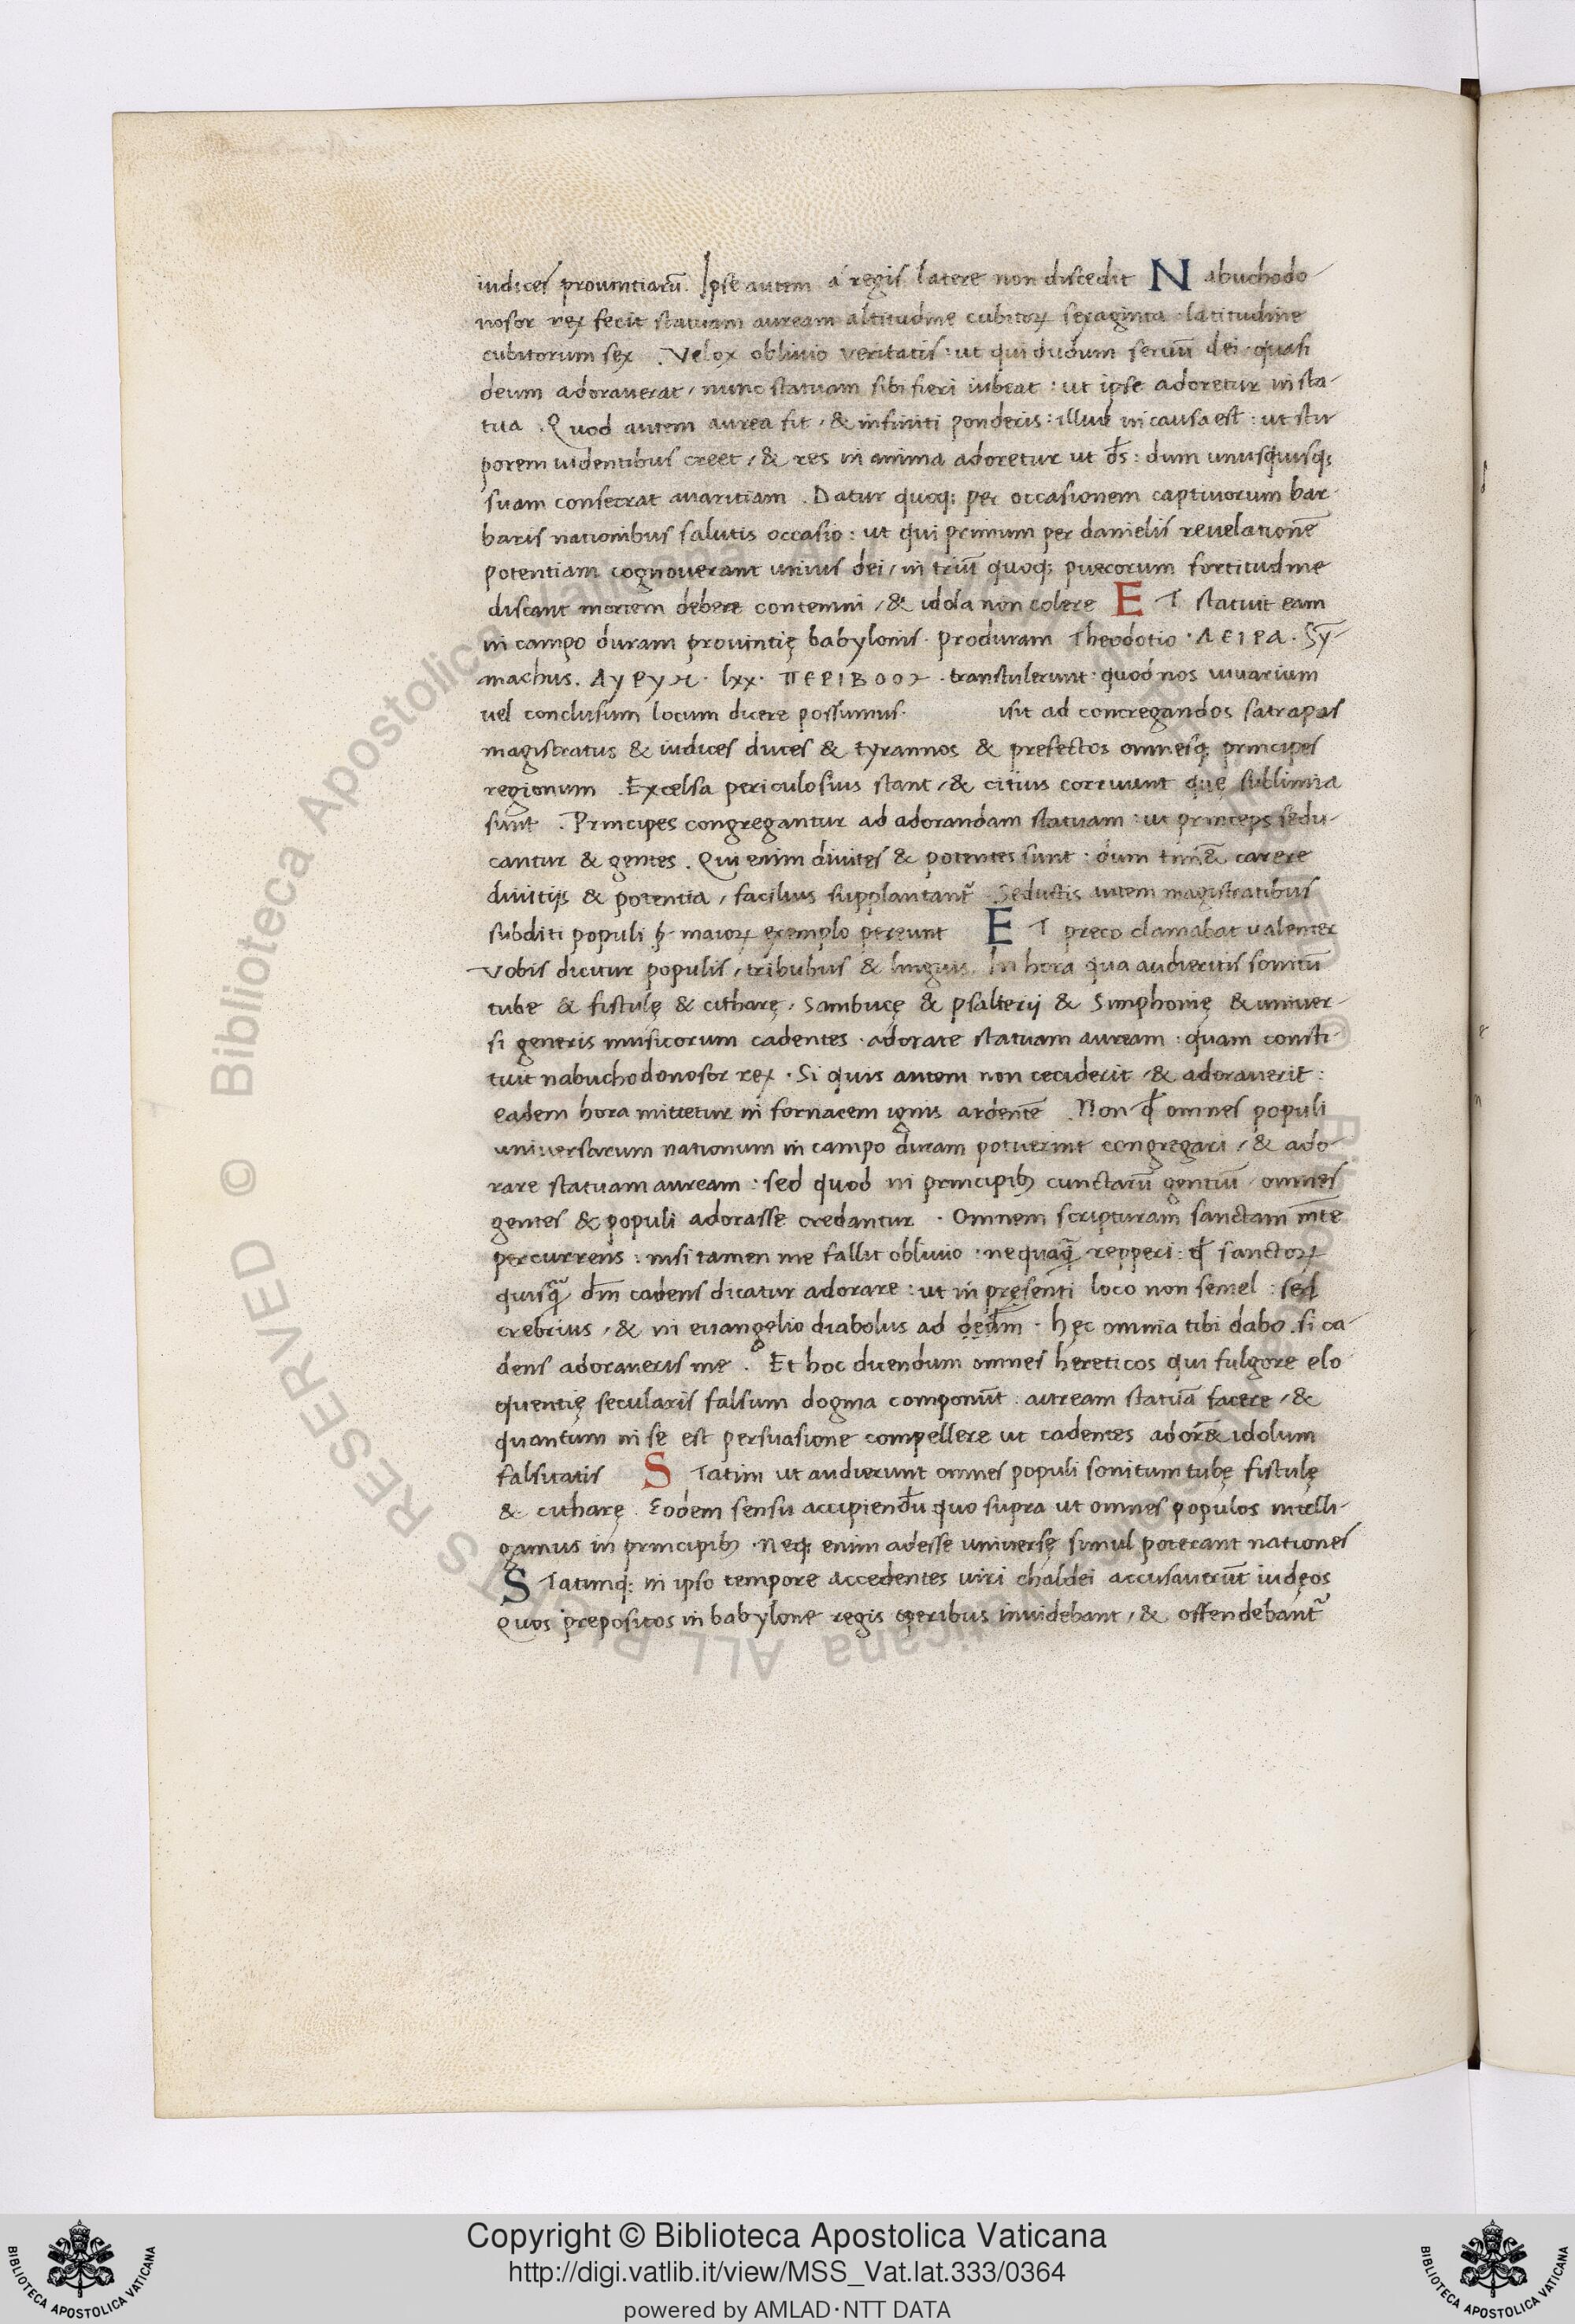 iudices prouintiarū. Ipse autem á regis latere non discedit N abuchodo-
nosor rex fecit statuam auream altitudine cubitoꝝ sexaginta latitudine
cubitorum sex . Velox obliuio veritatis : ut qui dudum seruū dei quasi
deum adorauerat / nunc statuam sibi fieri iubeat : ut ipse adoretur in sta-
tua . Quod autem aurea sit / & infiniti ponderis : illud in causa est : ut stu
porem uidentibus creet / & res in anima adoretur ut d̄s : dum unusquisq;
suam consecrat auaritiam . Datur quoq; per occasionem captiuorum bar-
baris nationibus salutis occasio : ut qui primum per danielis reuelationē
potentiam cognouerant unius dei / in triū quoq; puerorum fortitudine
discant mortem debere contemni / & idola non colere E T statuit eam
in campo duram prouintię babylonis . pro duram Theodotio . ΛΕΙΡΑ . Sȳ-
machus . ΛΥΡΥϰ . lxx . ΠΕΡΙΒΟΟϰ . transtulerunt . quod nos uiuarium
uel conclusum locum dicere possumus . isit ad concregandos satrapas
magistratus & iudices duces & tyrannos & prefectos omnesq; principes
regionum . Excelsa periculosius stant / & citius corruunt quę sublimia
sunt . Principes congregantur ad adorandam statuam : ut princeps sedu-
cantur & gentes . Qui enim diuites & potentes sunt : dum tim& carere
diuitijs & potentia / facilius supplantant᷑ . Seductis autem magistratibus
subditi populi ꝓ maioꝝ exemplo pereunt E T preco clamabat ualenter
Vobis dicitur populis / tribubus & linguis . In hora qua audieritis sonitū
tube & fistulę & citharę . Sambucę & psalterij & Simphonię & uniuer-
si generis musicorum cadentes . adorate statuam auream : quam consti-
tuit nabuchodonosor rex . Si quis autem non ceciderit / & adorauerit :
eadem hora mittetur in fornacem ignis ardentē . Non ꝙ omnes populi
uniuersarum nationum in campo duram potuerint congregari / & ado-
rare statuam auream : sed quod in principib; cunctarū gentiū omnes
gentes & populi adorasse credantur . Omnem scripturam sanctam mēte
percurrens : nisi tamen me fallit obliuio . nequaq̄ repperi : ꝙ sanctoꝝ
quisq̄ dm̄ cadens dicatur adorare : ut in pręsenti loco non semel : sed
crebrius / & in euangelio diabolus ad dm̄ . hęc omnia tibi dabo . si ca-
dens adoraueris me . Et hoc dicendum omnes hereticos qui fulgore elo
quentię secularis falsum dogma componūt . auream statuā facere / &
quantum in se est persuasione compellere ut cadentes ador& idolum
falsitatis S Tatim ut audierunt omnes populi sonitum tubę fistulę
& citharę . Eodem sensu accipiendū quo supra ut omnes populos intelli-
gamus in principib; . Neq; enim adesse uniuersę simul poterant nationes
S Tatimq; in ipso tempore accedentes uiri chaldei accusauerūt iudęos
Quos prepositos in babylone regis operibus inuidebant / & offendebant᷑
© Biblioteca Apostolica Vaticana ALL RIGHTS RESERVED
Copyright © Biblioteca Apostolica Vaticana
http://digi.vatlib.it/view/MSS_Vat.lat.333/0364
powered by AMLAD·NTT DATA
BIBLIOTECA APOSTOLICA VATICANA
BIBLIOTECA APOSTOLICA VATICANA